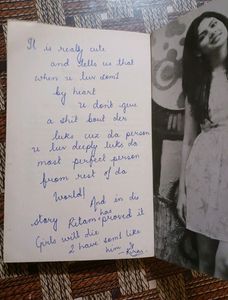 It is realy cute
and tells us that
when u luv som1
by heart
u don't give
a shit bout der
luks cuz da person
u luv deeply luks da
most perfect person
from rest of da
World!
And in dis
story Ritam has proved it
Girls will die
2 have som1 like
him